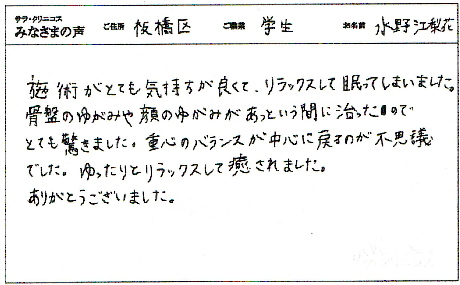 サラ・クリニコス
みなさまの声 ご住所 板橋区 ご職業 学生 お名前 水野江梨花
施術がとても気持ちが良くて、リラックスして眠ってしまいました。
骨盤のゆがみや顔のゆがみがあっという間に治ったので
とても驚きました。重心のバランスが中心に戻るのが不思議
でした。ゆったりとリラックスして癒されました。
ありがとうございました。